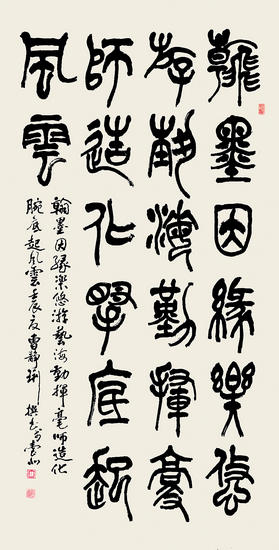 翰墨因緣樂悠
游藝海勤揮毫
師造化腕底起
風雲
翰墨因緣樂悠游藝海勤揮毫師造化
腕底起風雲壬辰夏曹靜